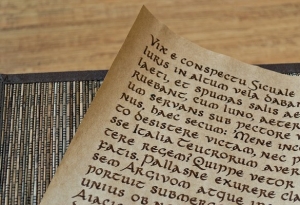 Vix e conspectu Siculae
luris in altum vela daban
laeti, et spumas salis ae
ruebant, cum Iuno, aeter
um servans sub pectore
nus, haec secum: Mene ince
to desistere victam, nec p
sse Italia Teucrorum aver
tere regem? Quippe vetor
fatis. Pallasne exurere cl
sem Argivom atque
unius ob
Aiacis